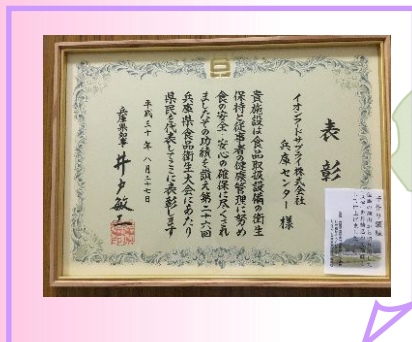 表彰
イオンフードサプライ株式会社
兵庫センター 様
貴施設は食品取扱設備の衛生
保持と従事者の健康管理に努め
食の安全・安心の確保に尽くされ
ましたその功績を讃え第二十六回
兵庫県食品衛生大会にあたり
県民を代表してここに表彰します
平成三十年 八月二十七日
兵庫県知事 井戸敏三